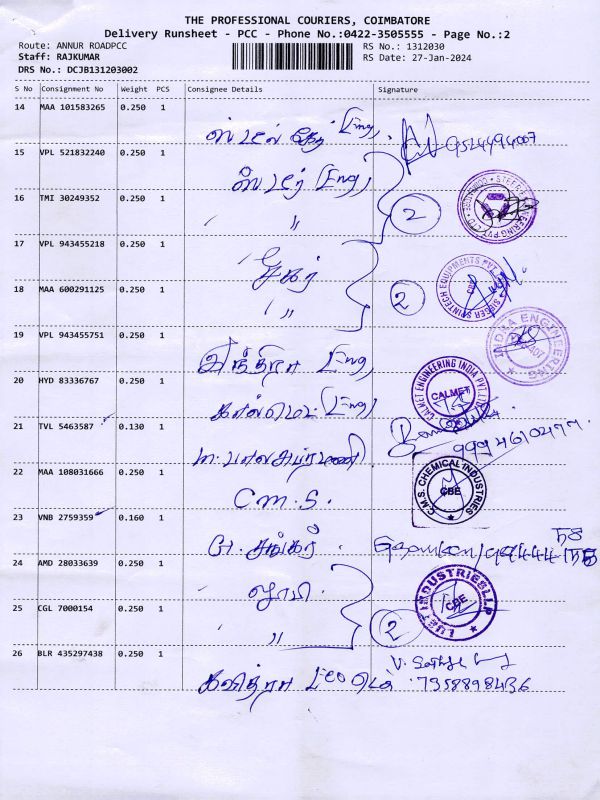 THE PROFESSIONAL COURIERS, COIMBATORE
Delivery Runsheet - PCC - Phone No.:0422-3505555 - Page No.:2
Route: ANNUR ROADPCC
RS No.: 1312030
Staff: RAJKUMAR
RS Date: 27-Jan-2024
DRS No.: DCJB131203002
S No Consignment No Weight PCS Consignee Details Signature
14 MAA 101583265 0.250 1
Eng, 9524494007
15 VPL 521832240 0.250 1
Eng,
16 TMI 30249352 0.250 1
〃 2
17 VPL 943455218 0.250 1
சேகர்
18 MAA 600291125 0.250 1
〃 2
19 VPL 943455751 0.250 1
இந்திரா Eng
INDIRA ENGINEERING
20 HYD 83336767 0.250 1
கால்மெட் Eng
CALMET ENGINEERING INDIA PVT. LTD.
CALMET
21 TVL 5463587 0.130 1
m. பாலசுப்ரமணி
22 MAA 108031666 0.250 1
C.M.S.
C.M.S. CHEMICAL INDUSTRIES
CBE
23 VNB 2759359 0.160 1
சங்கர்
24 AMD 28033639 0.250 1
25 CGL 7000154 0.250 1
〃 2
INDUSTRIES LLP
CBE
26 BLR 435297438 0.250 1
கவித்ரா 7358898436